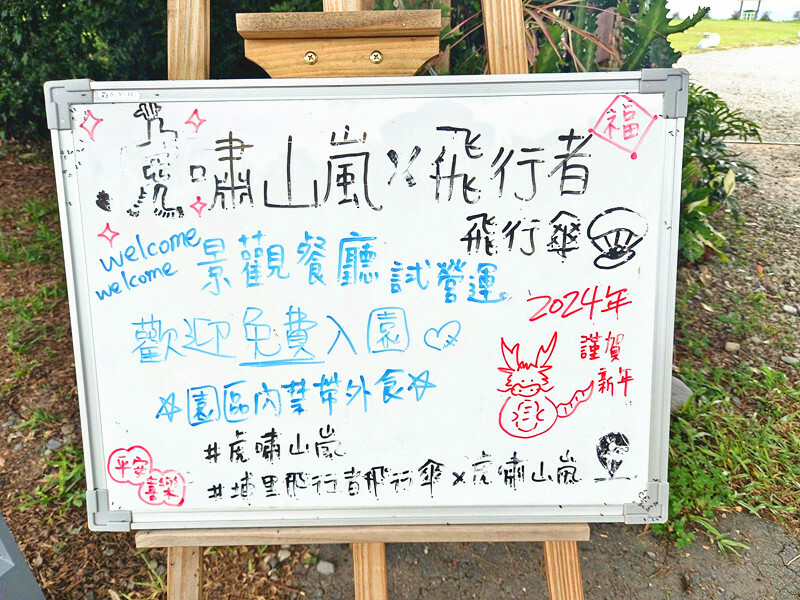 福
虎嘯山嵐×飛行者
飛行傘
welcome
welcome
景觀餐廳 試營運
2024年
歡迎免費入園
謹賀
新年
☆園區內禁帶外食☆
#虎嘯山嵐
平安
喜樂
#埔里飛行者飛行傘×虎嘯山嵐